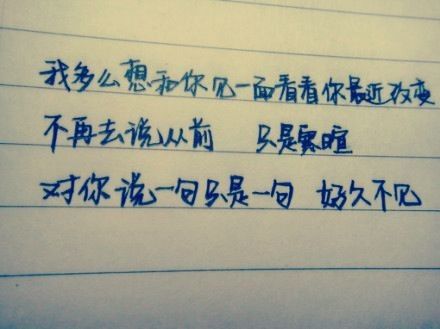 我多么想和你见一面看看你最近改变
不再去说从前 只是寒暄
对你说一句只是一句 好久不见